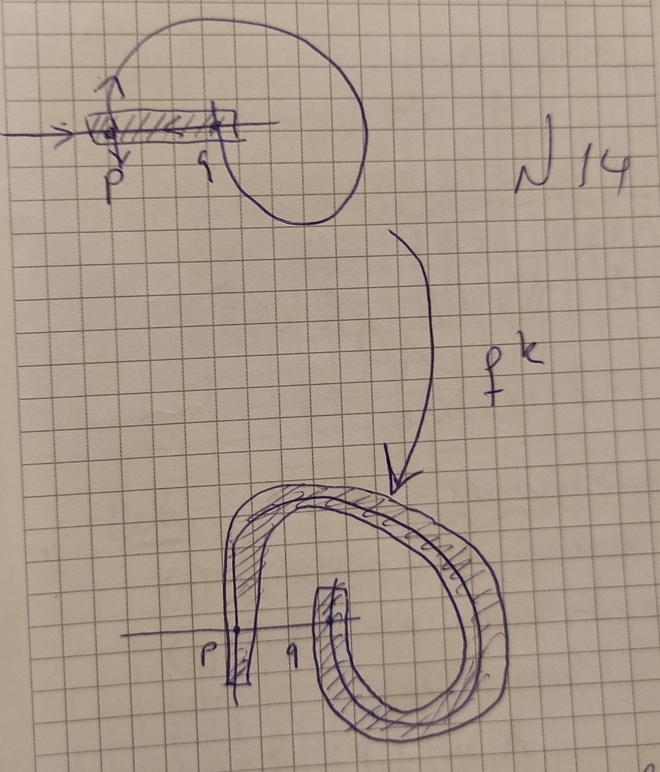 p q
N 14
f^k
p q